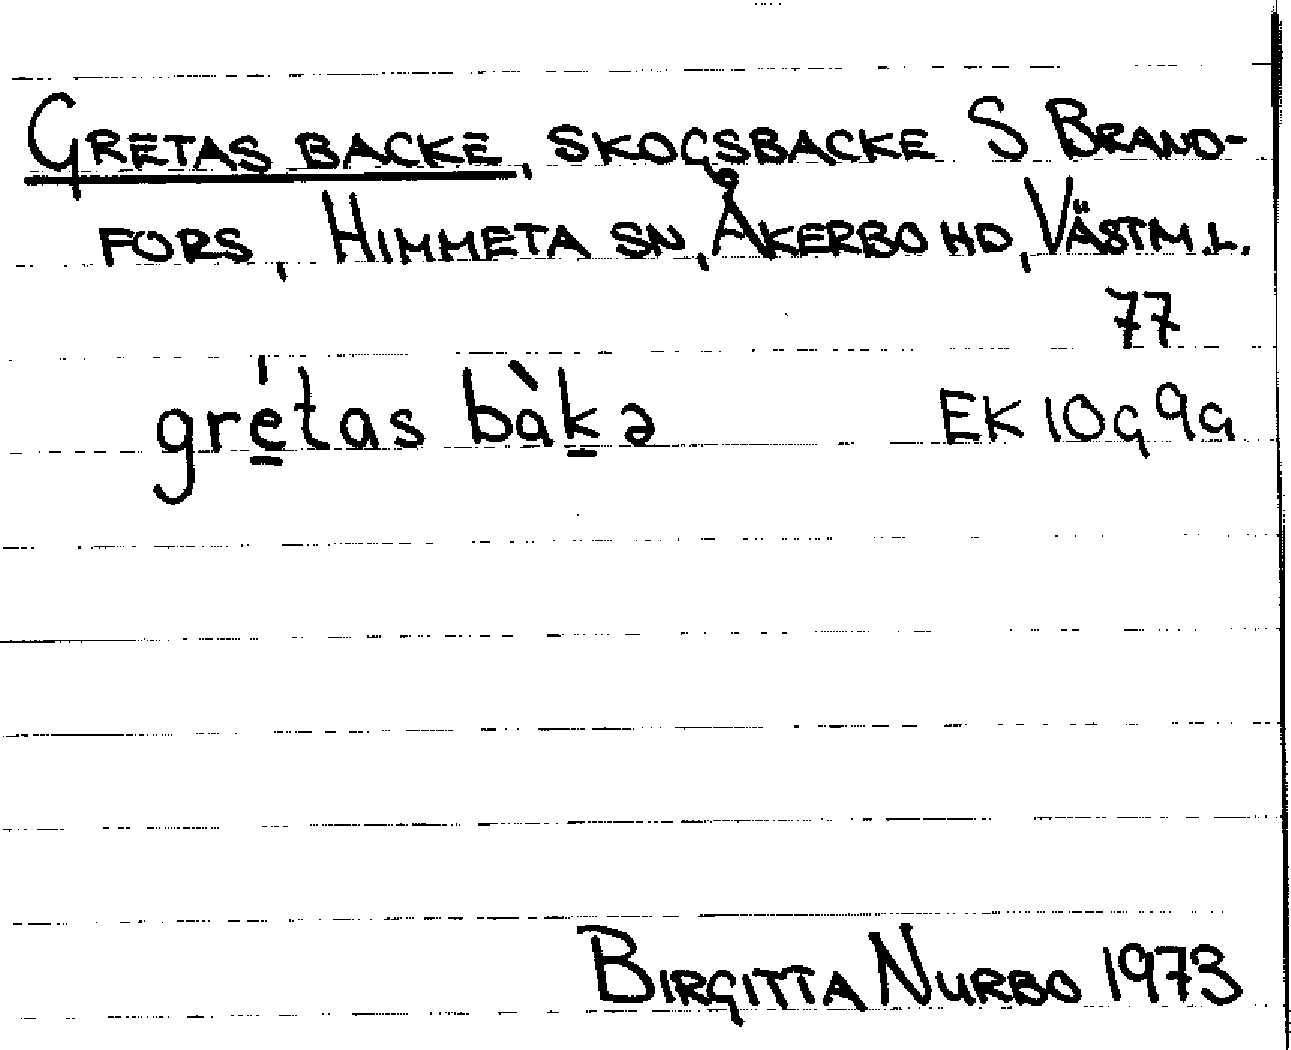 GRETAS BACKE, SKOGSBACKE S BRAND-
FORS, HIMMETA SN, ÅKERBO HD, VÄSTM.L.
77
gré̲tas bàk̲ə EK 10G 9G
BIRGITTA NURBO 1973